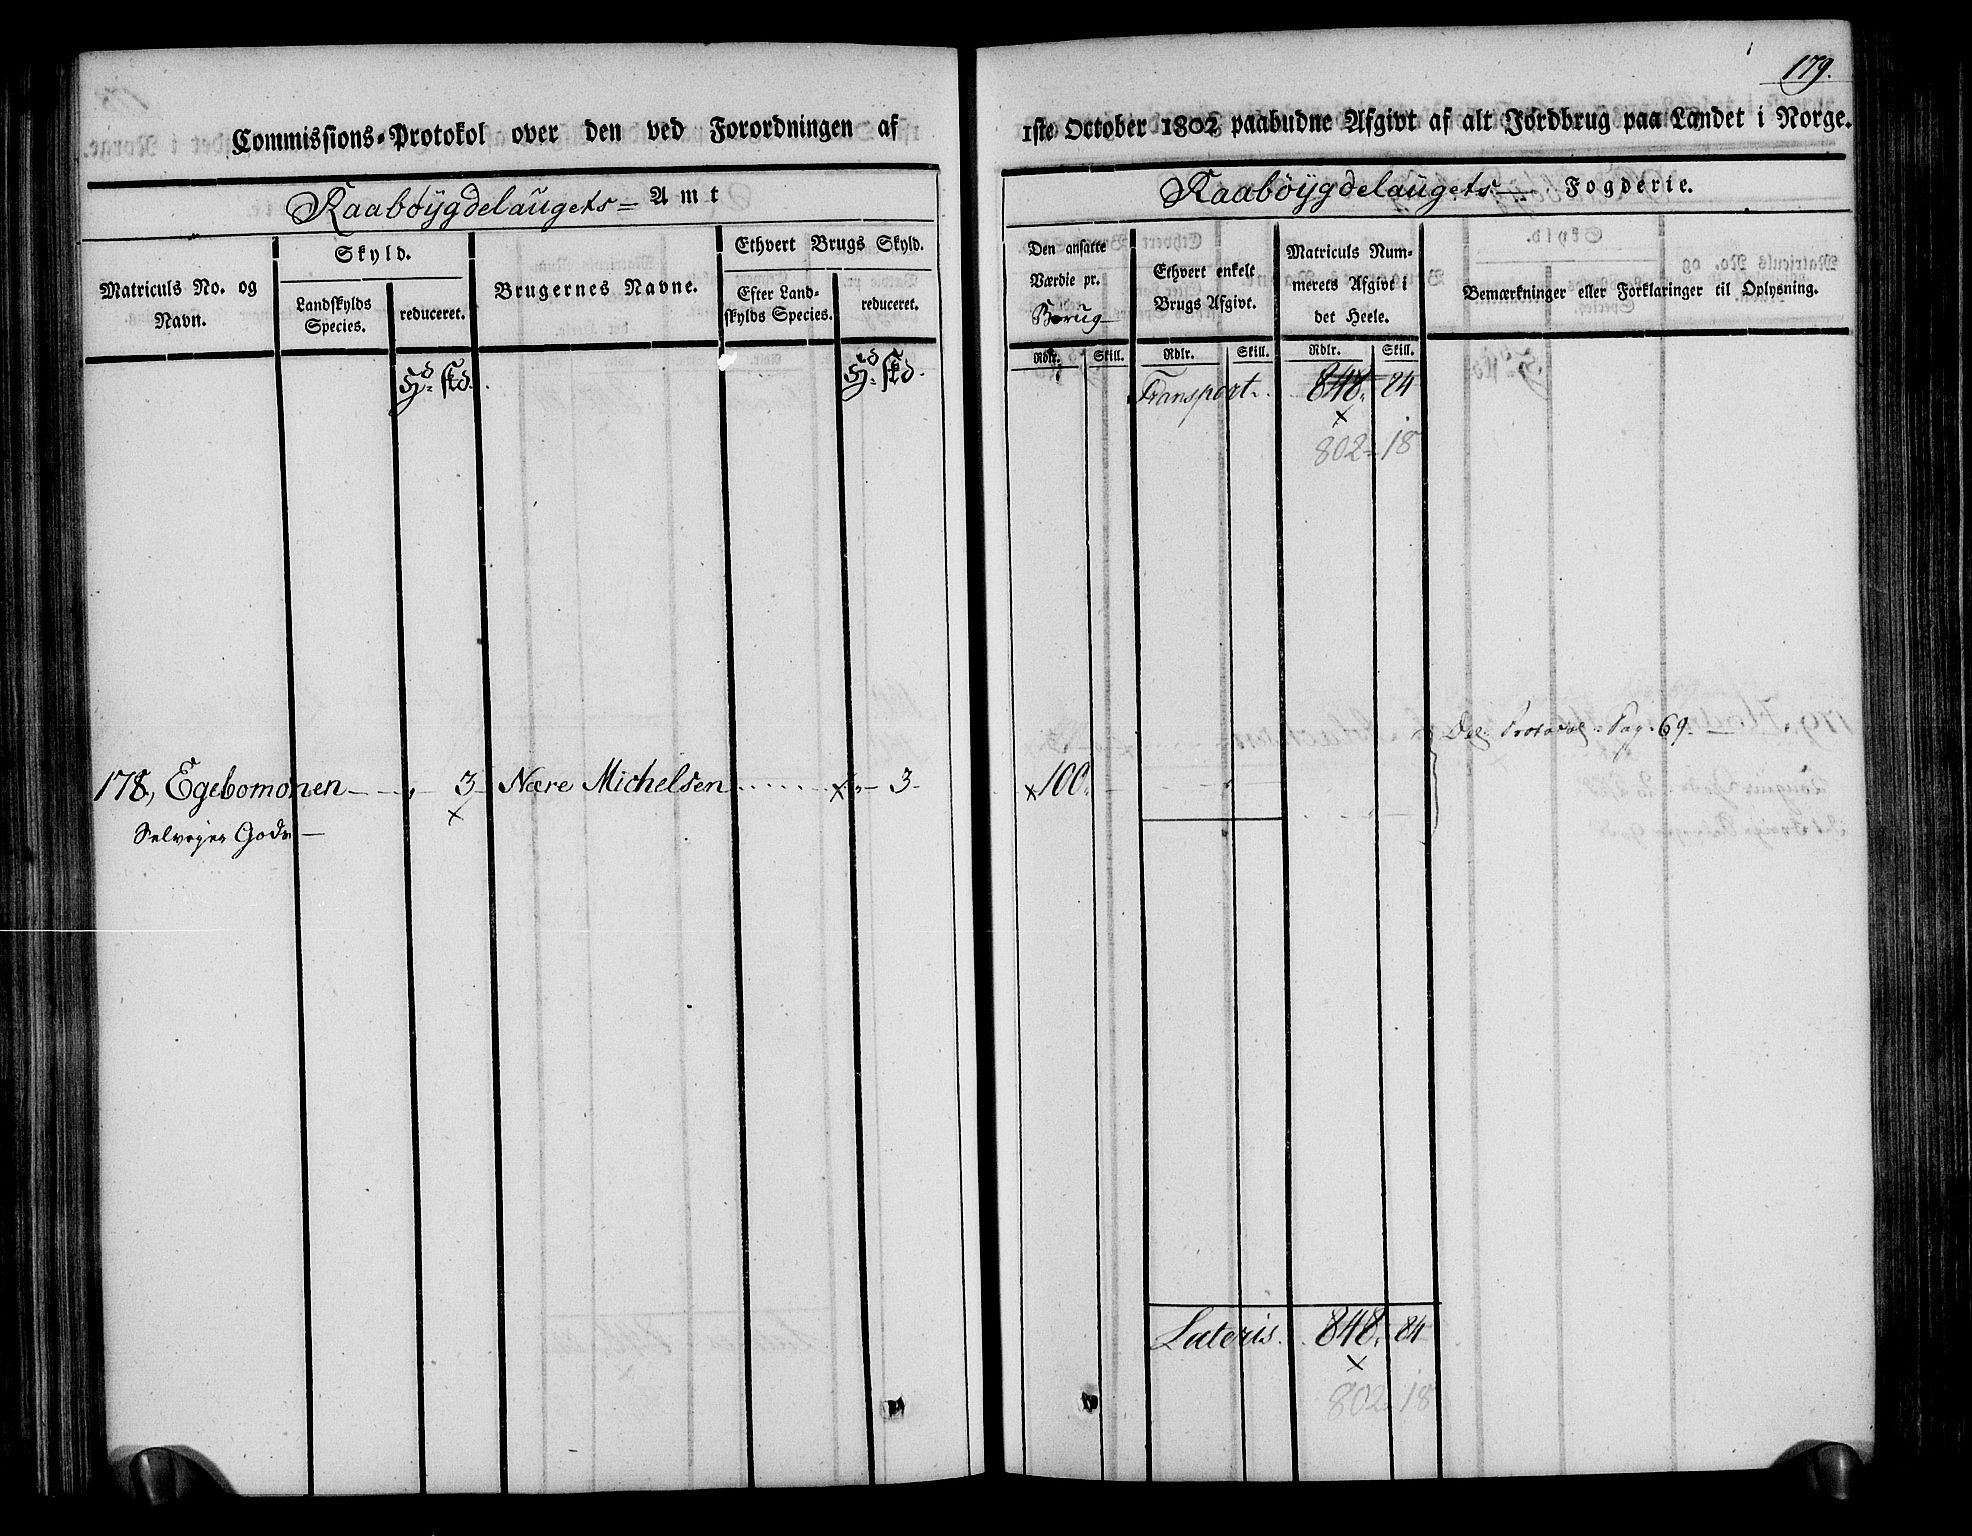 179.
Commissions-Protokol over den ved Forordningen af
1ste October 1802 paabudne Afgivt af alt Jordbrug paa Landet i Norge.
Raabøygdelaugets = Amt
Raabøygdelaugets — Fogderie.
Matriculs No. og Navn.
Skyld.
Landskylds Species.
reduceret.
Brugernes Navne.
Ethvert Brugs Skyld.
Efter Landskylds Species.
reduceret.
Den ansatte Værdie pr. Brug
Ethvert enkelt Brugs Afgivt.
Matriculs Nummerets Afgivt i det Heele.
Bemærkninger eller Forklaringer til Oplysning.
Rdlr. Skill. Rdlr. Skill. Rdlr. Skill.
Hd. skd.
Hd. skd.
Transport. 848. 84
x
802 = 18
Protocol Pag. 69.
178, Egebomonen — „ 3 Nære Michelsen x „ — 3 x 100.
x
Selveyer Gods —
Lateris. 848. 84
x
802 = 18